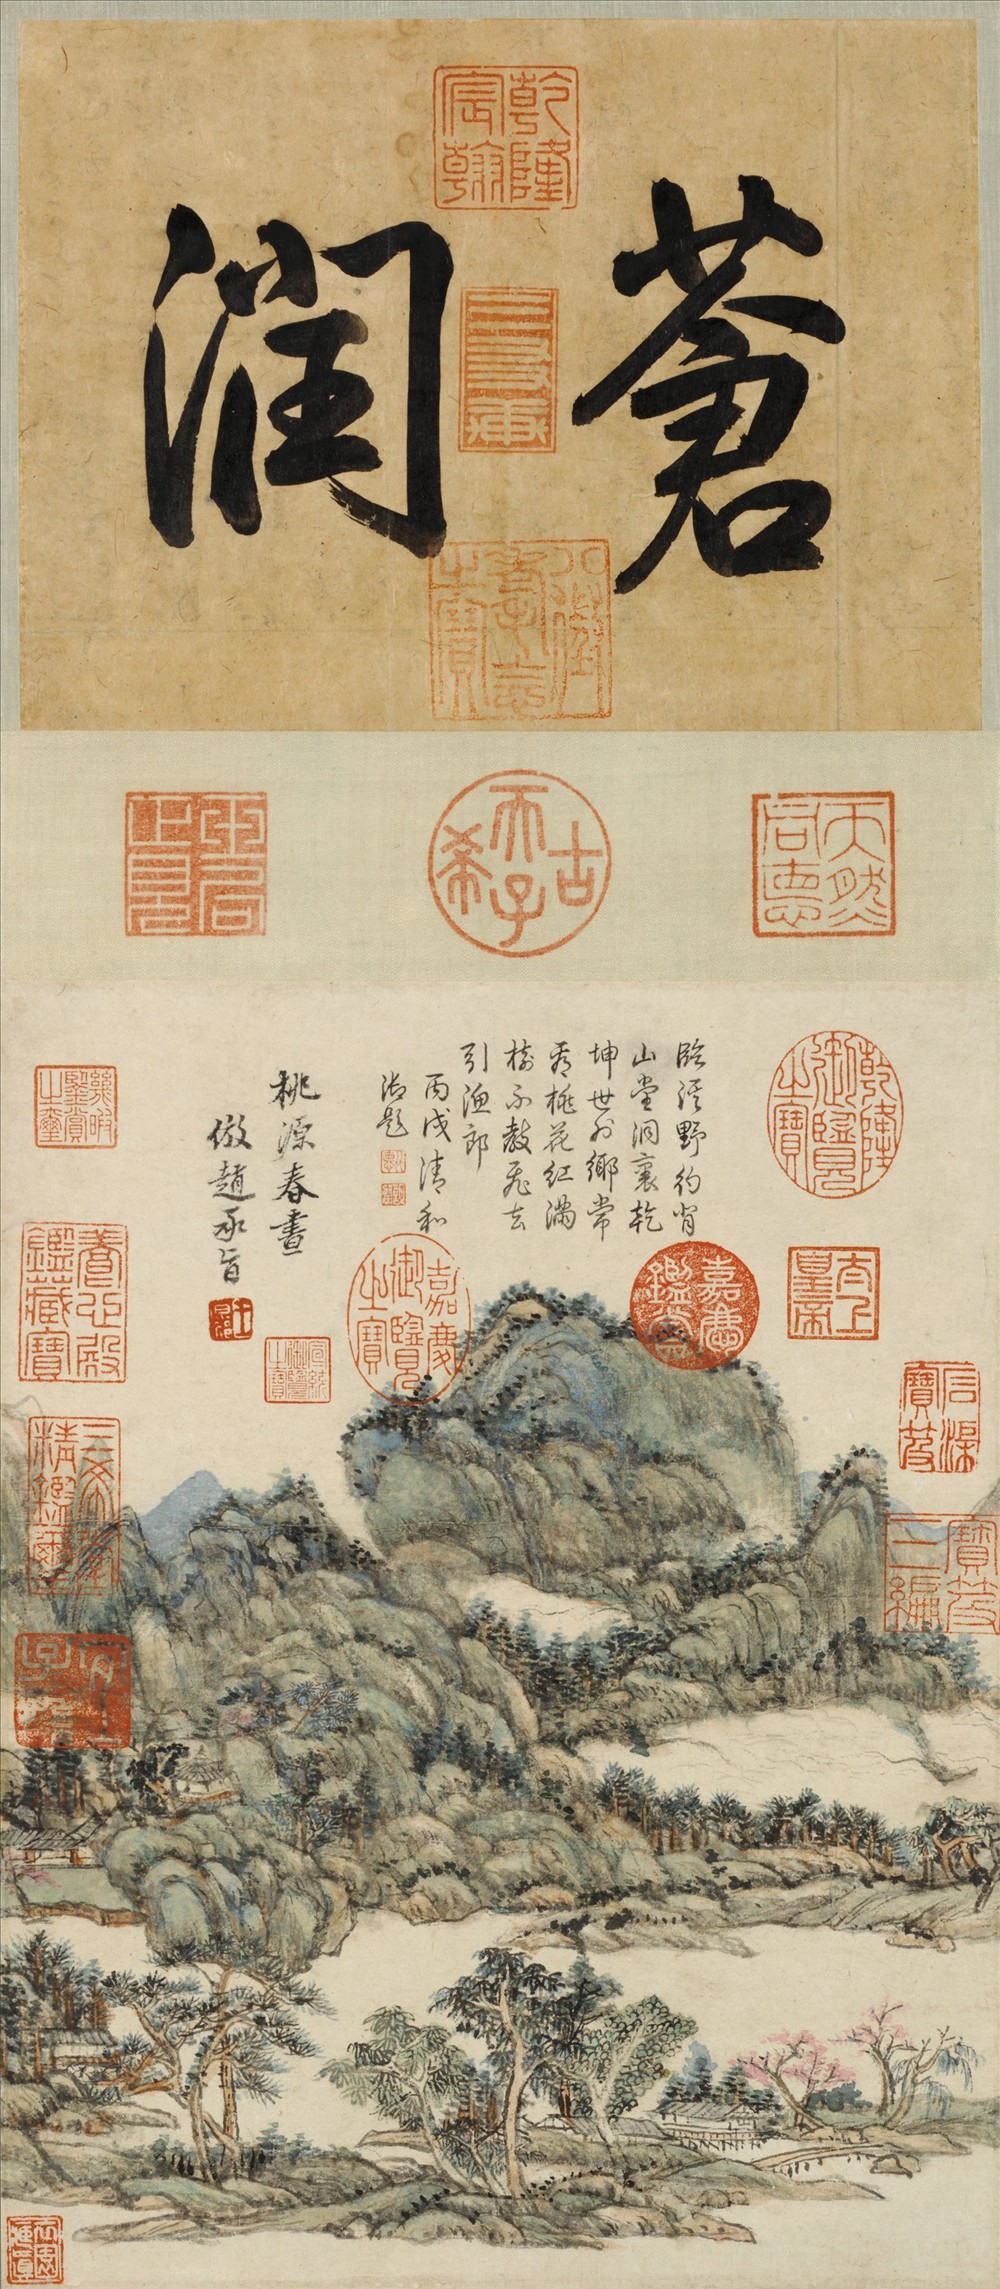 蒼潤
乾隆宸翰
三友軒
八徵耄念之寶
天然
古希天子
五福五代堂古稀天子寶
臨溪野約背
山堂洞裏乾
坤世外鄉常
看桃花紅滿
樹不教飛去
引漁郎
丙戌清和
御題
桃源春晝
倣趙承旨
乾隆御覽之寶
太上皇帝
嘉慶鑑賞
嘉慶御覽之寶
宣統御覽之寶
石渠寶笈
寶笈三編
幾暇鑒賞之璽
養心殿鑑藏寶
三希堂精鑑璽
宜子孫